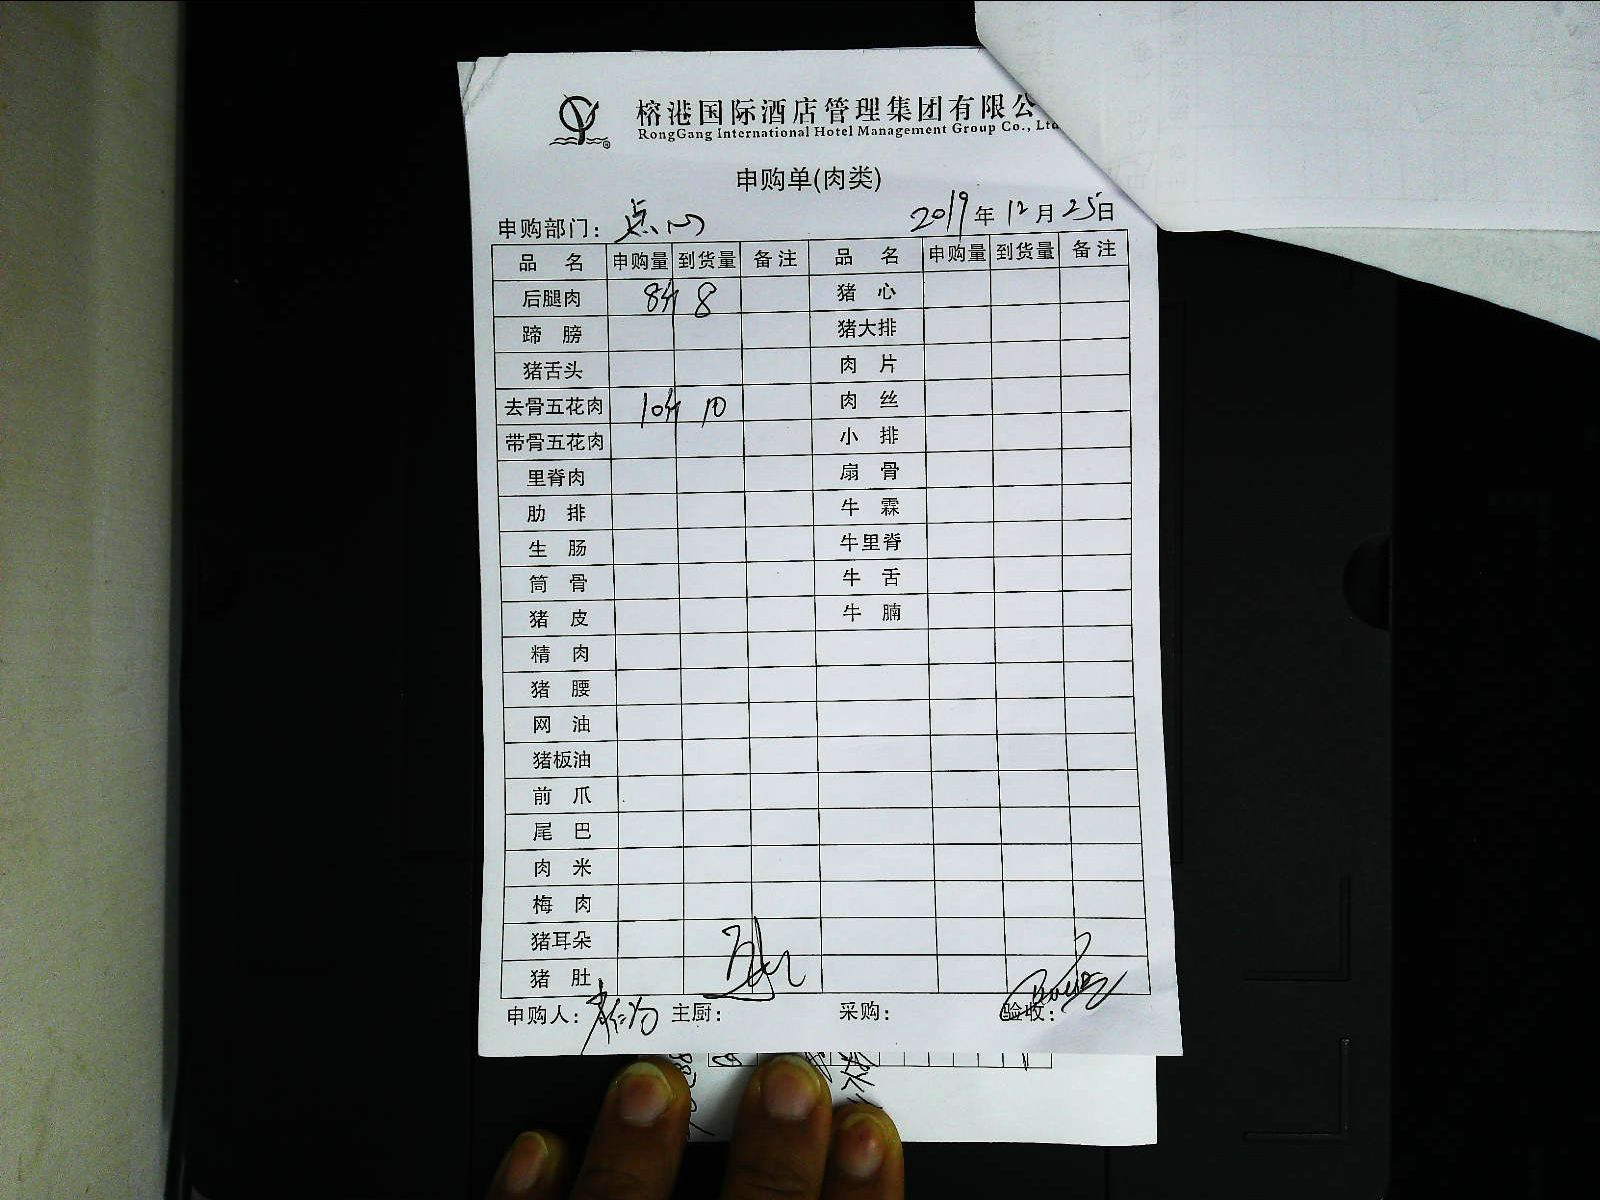 榕港国际酒店管理集团有限公
RongGang International Hotel Management Group Co., Ltd
申购单(肉类)
申购部门：点心 2019年12月25日
品 名 申购量 到货量 备注 品 名 申购量 到货量 备注
后腿肉 8斤 8 猪 心
蹄 膀 猪大排
猪舌头 肉 片
去骨五花肉 10斤 10 肉 丝
带骨五花肉 小 排
里脊肉 扇 骨
肋 排 牛 霖
生 肠 牛里脊
筒 骨 牛 舌
猪 皮 牛 腩
精 肉
猪 腰
网 油
猪板油
前 爪
尾 巴
肉 米
梅 肉
猪耳朵
猪 肚
申购人： 主厨： 采购： 验收：